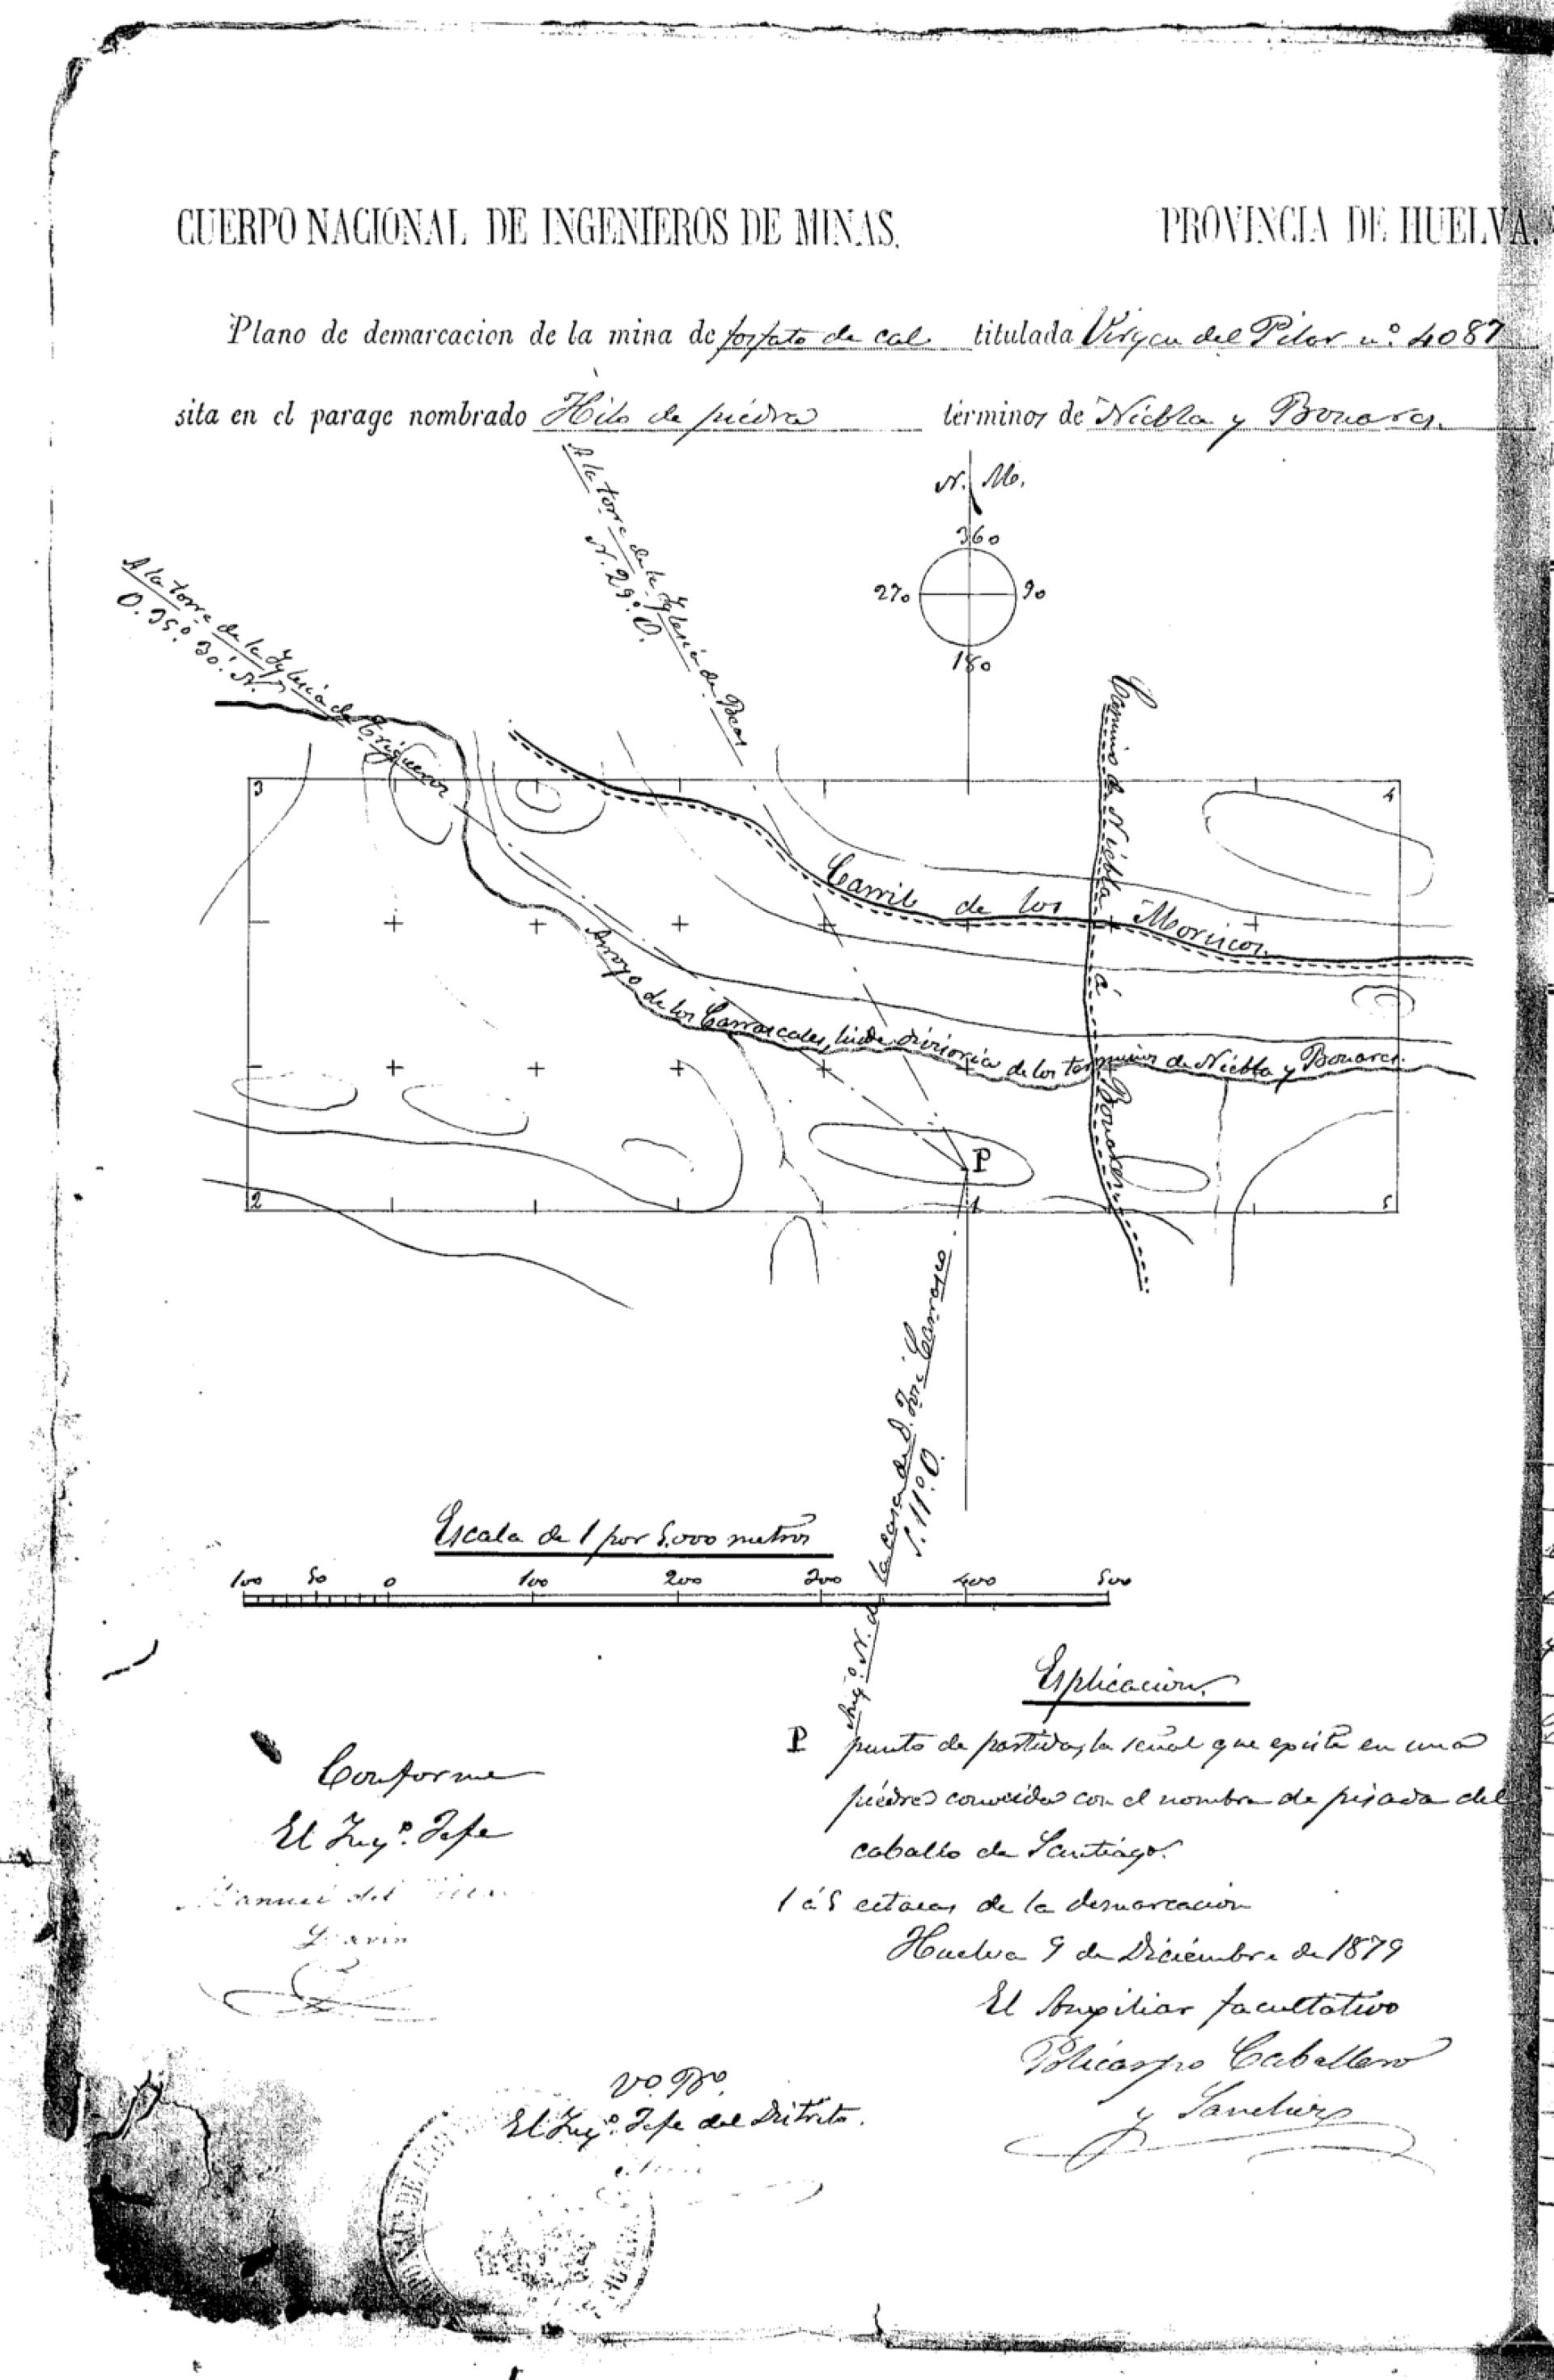 CUERPO NACIONAL DE INGENIEROS DE MINAS. PROVINCIA DE HUELVA.
Plano de demarcacion de la mina de fosfato de cal titulada Virgen del Pilar nº 4087
sita en el parage nombrado Hito de piedra terminos de Niebla y Bonares.
N. M.
360
270 90
180
A la torre de la Iglesia de Beas
N. 29º O.
A la torre de la Iglesia de Trigueros
O. 35º 30' N.
3
4
Camino de Niebla á Bonares
Carril de los Moriscos.
Arroyo de los Carrascales, linde divisoria de los terminos de Niebla y Bonares.
P
2
1
5
Angº N. de la casa de D. José Carrasco
S. 11º O.
Escala de 1 por 5.000 metros
100 50 0 100 200 300 400 500
Esplicacion.
P punto de partida, la señal que existe en una
piedra conocida con el nombre de pisada del
caballo de Santiago.
1 á 5 estacas de la demarcacion
Huelva 9 de Diciembre de 1879
El Auxiliar facultativo
Policarpo Caballero
y Sanchez
Conforme
El Ingº Jefe
Manuel del
Vº Bº
El Ingº Jefe del Distrito.
HUELVA